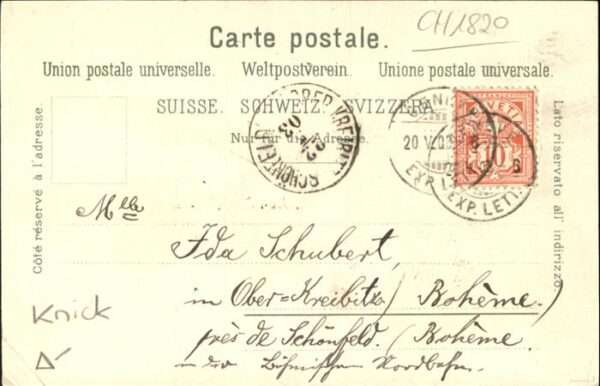 CH1820
Carte postale.
Union postale universelle. Weltpostverein. Unione postale universale.
SUISSE. SCHWEIZ. SVIZZERA.
Nur für die Adresse.
Côté réservé à l'adresse.
Lato riservato all' indirizzo.
HELVETIA
10
20 V.03
EXP. LETT.
22
03
Mlle
Ida Schubert,
in Ober=Kreibitz / Bohème.
près de Schönfeld. / Bohème
in der Böhmischen Nordbahn.
Knick